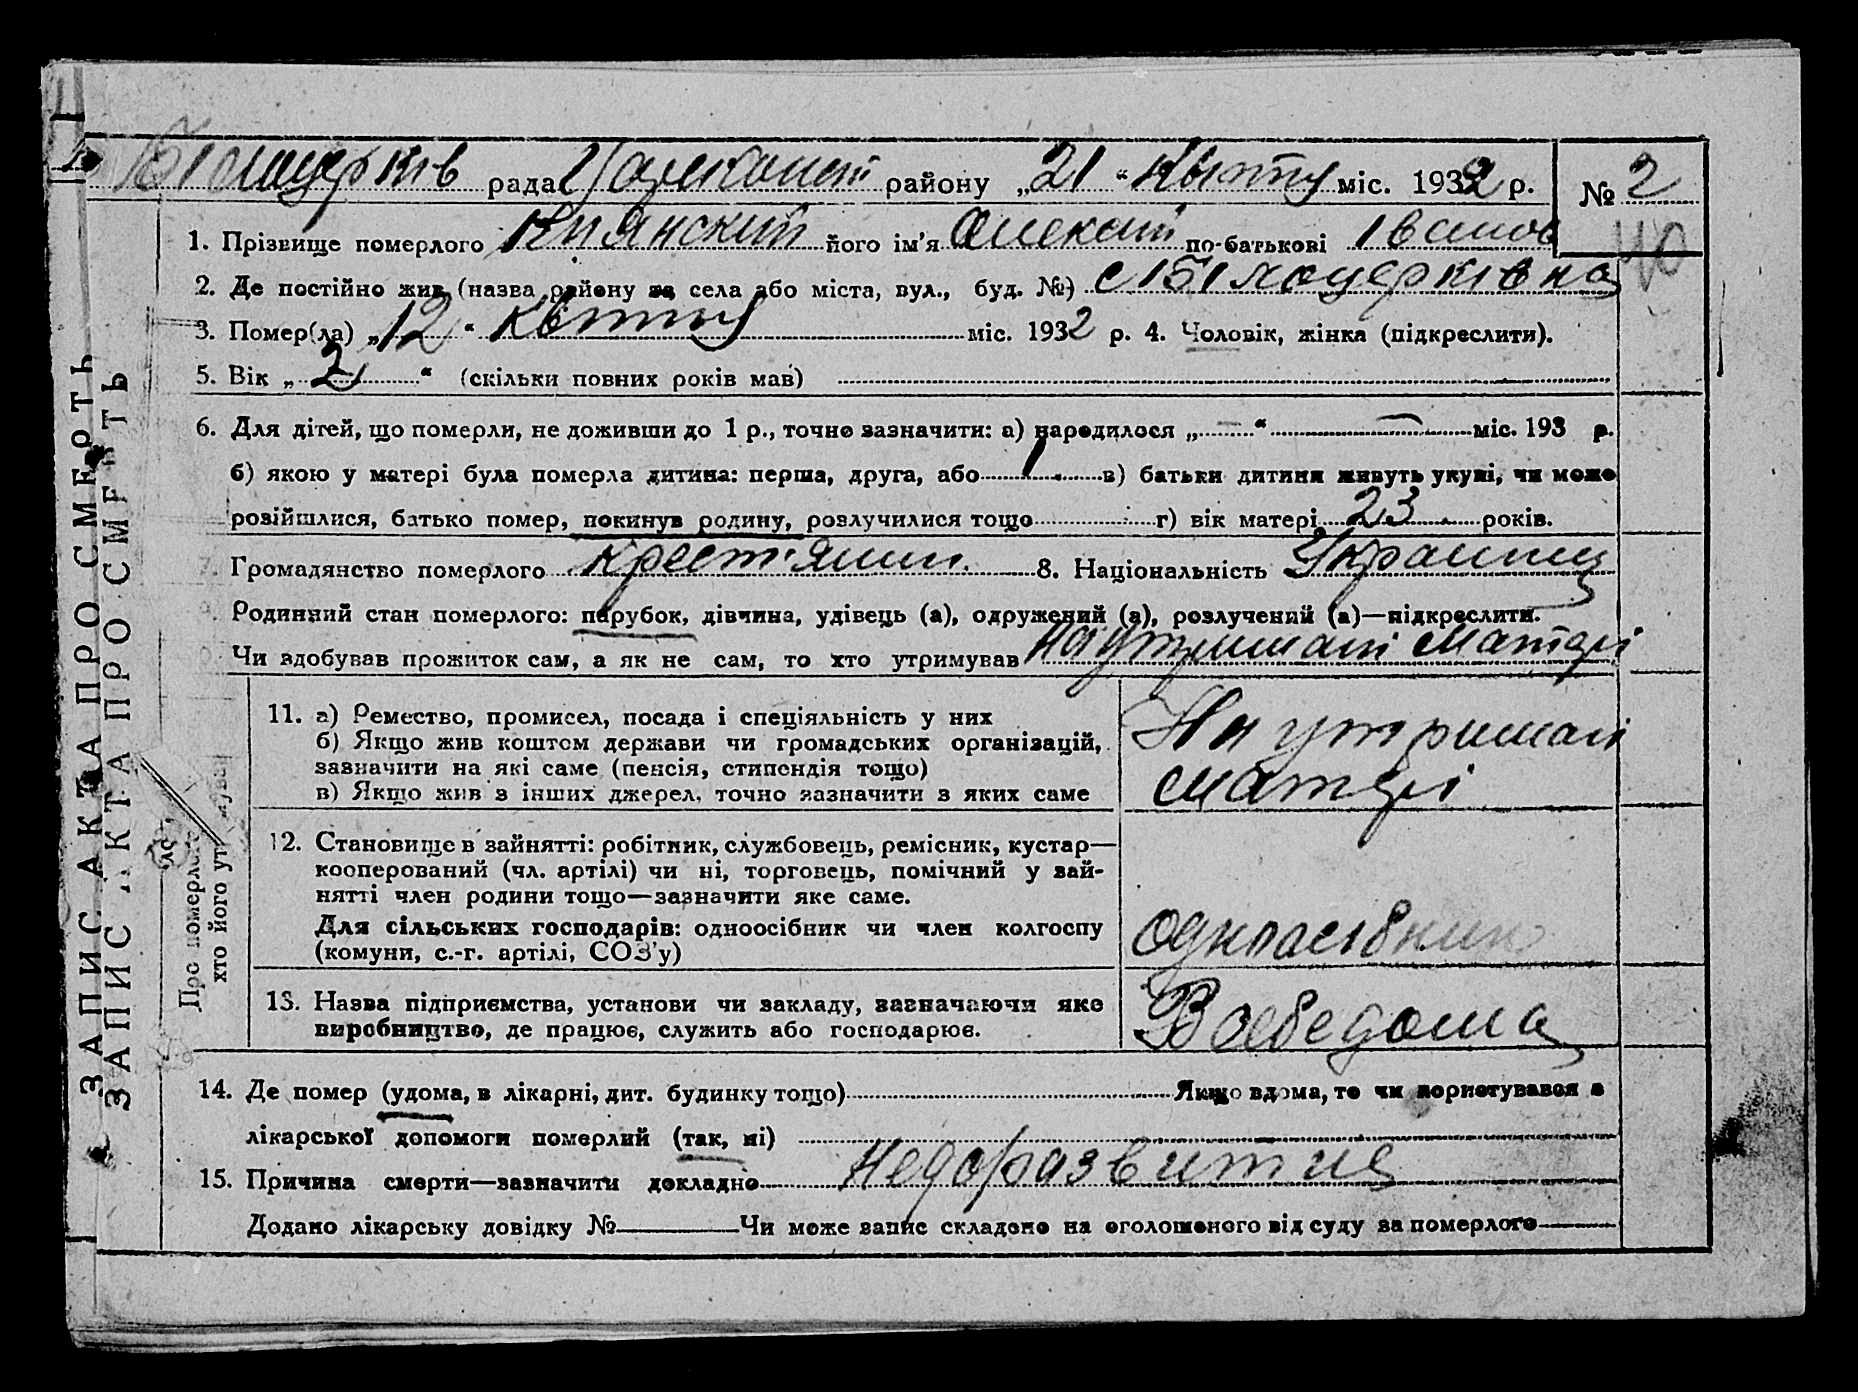 Білоцерків рада району „21“ Квітня міс. 1932 р. № 2
40
1. Прізвище померлого Киянский його ім'я Олексій по-батькові Іванов
2. Де постійно жив (назва району за села або міста, вул., буд. №) с Білоцерківка
3. Помер(ла) „12“ Квітня міс. 1932 р. 4. Чоловік, жінка (підкреслити).
5. Вік „2“ (скільки повних років мав)
6. Для дітей, що померли, не доживши до 1 р., точно зазначити: а) народилося „—“ — міс. 193 р.
б) якою у матері була померла дитина: перша, друга, або 1. в) батьки дитини живуть укупі, чи може
розійшлися, батько помер, покинув родину, розлучилися тощо г) вік матері 23 років.
7. Громадянство померлого крестянин 8. Національність Украинец
Родинний стан померлого: парубок, дівчина, удівець (а), одружений (а), розлучений (а)—підкреслити.
Чи здобував прожиток сам, а як не сам, то хто утримував на утримані матері
11. а) Ремество, промисел, посада і спеціяльність у них
б) Якщо жив коштом держави чи громадських організацій,
зазначити на які саме (пенсія, стипендія тощо)
в) Якщо жив з інших джерел, точно зазначити з яких саме
На утримані
матері
12. Становище в зайнятті: робітник, службовець, ремісник, кустар—
кооперований (чл. артілі) чи ні, торговець, помічний у зай-
нятті член родини тощо—зазначити яке саме.
Для сільських господарів: одноосібник чи член колгоспу
(комуни, с.-г. артілі, СОЗ'у)
одноасібник
13. Назва підприємства, установи чи закладу, зазначаючи яке
виробництво, де працює, служить або господарює.
В себе дома
14. Де помер (удома, в лікарні, дит. будинку тощо) Якщо вдома, то чи користувався з
лікарської допомоги померлий (так, ні)
15. Причина смерти—зазначити докладно недоразвитие
Додано лікарську довідку № Чи може запис складено на оголошеного від суду за померлого
ЗАПИС АКТА ПРО СМЕРТЬ
ЗАПИС АКТА ПРО СМЕРТЬ
Про померлого
хто його ут